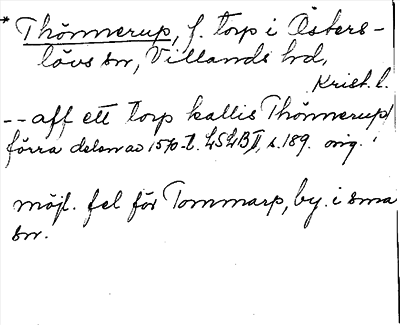 * Thönnerup, f. torp i Östers-
lövs sn, Villands hd,
Krist. l.
-- aff ett torp kallis Thönnerup/
förra delen av 1570-t. LSLB II, s. 189. orig.
möjl. fel för Tommarp, by i sma
sn.